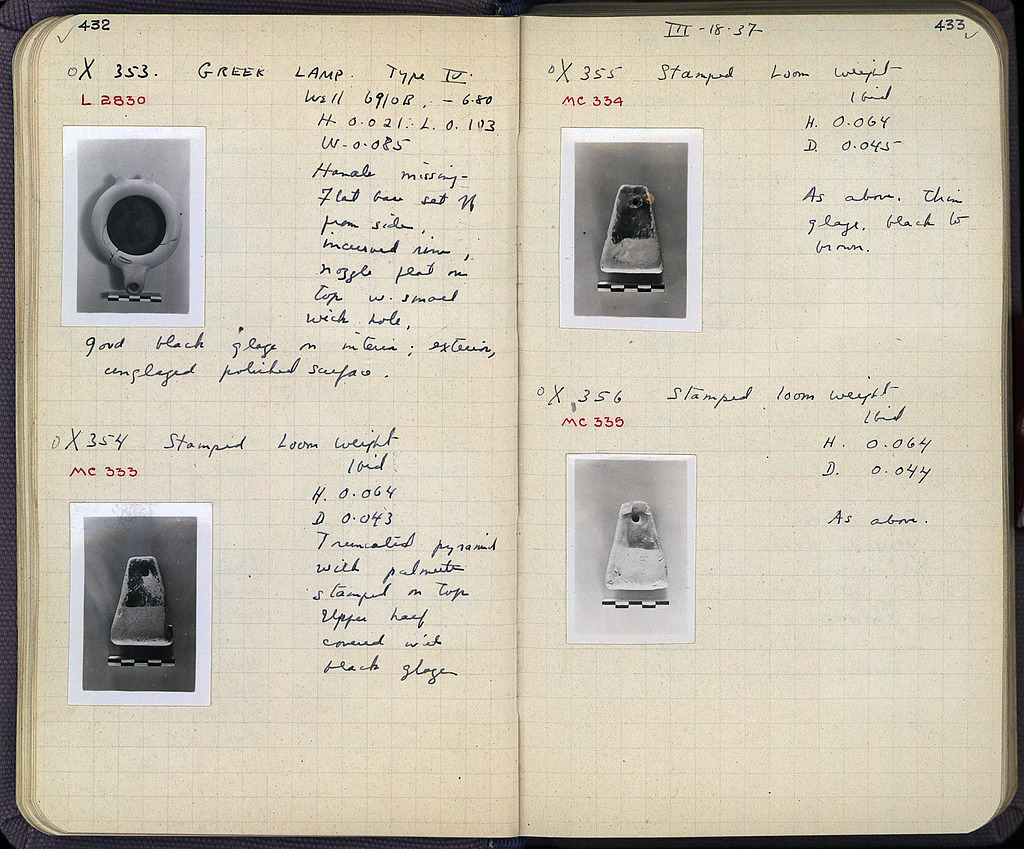 432
OX 353. GREEK LAMP. Type IV.
L 2830
Well 6910B, - 6.80
H 0.021. L. 0.103
W. 0.085
Handle missing -
Flat base set off
from side,
incurved rim,
nozzle flat on
top w. small
wick hole,
good black glaze on interior; exterior,
unglazed polished surface.
OX 354 Stamped Loom weight
MC 333
Ibid
H. 0.064
D 0.043
Truncated pyramid
with palmette
stamped on top
Upper half
covered with
black glaze
III - 18 - 37
433
OX 355 Stamped Loom weight
MC 334
Ibid
H. 0.064
D. 0.045
As above. Thin
glaze, black to
brown.
OX 356 Stamped loom weight
MC 335
Ibid
H. 0.064
D. 0.044
As above.